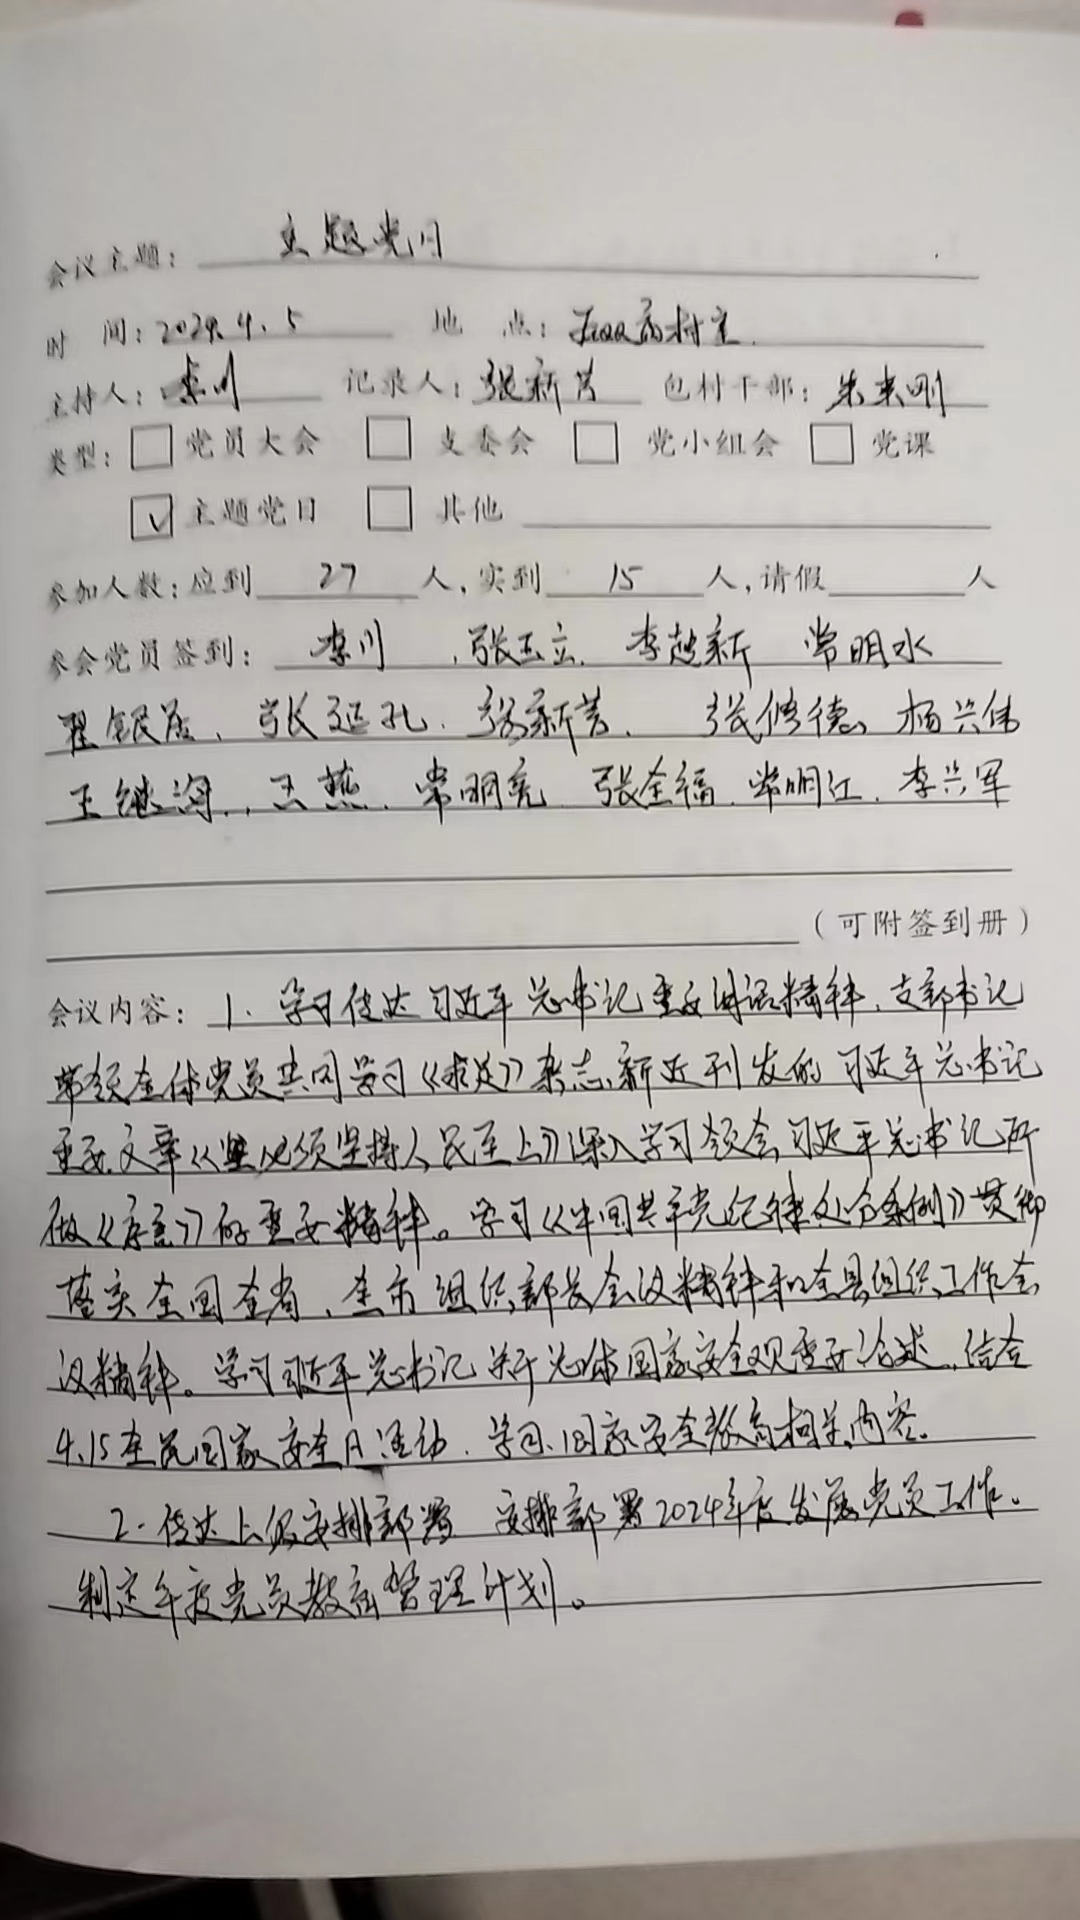 会议主题： 主题党日
时 间：2024.4.5 地 点： 村室
主持人：李川 记录人：张新芳 包村干部：朱来刚
类型：□ 党员大会 □ 支委会 □ 党小组会 □ 党课
☑ 主题党日 □ 其他
参加人数：应到 27 人，实到 15 人，请假 人
参会党员签到： 李川 张玉立 李超新 常明水
张延孔 张新芳 张修德 杨兴伟
王继海 王燕 常明亮 张全福 常明江 李兴军
（可附签到册）
会议内容：1. 学习传达习近平总书记重要讲话精神，支部书记
带领全体党员共同学习《求是》杂志新近刊发的习近平总书记
重要文章《必须坚持人民至上》深入学习领会习近平总书记所
做《序言》的重要精神。学习《中国共产党纪律处分条例》贯彻
落实全国全省、全市组织部长会议精神和全县组织工作会
议精神。学习习近平总书记关于总体国家安全观重要论述，结合
4.15全民国家安全日活动，学习国家安全教育相关内容。
2. 传达上级安排部署 安排部署2024年度发展党员工作。
制定年度党员教育管理计划。